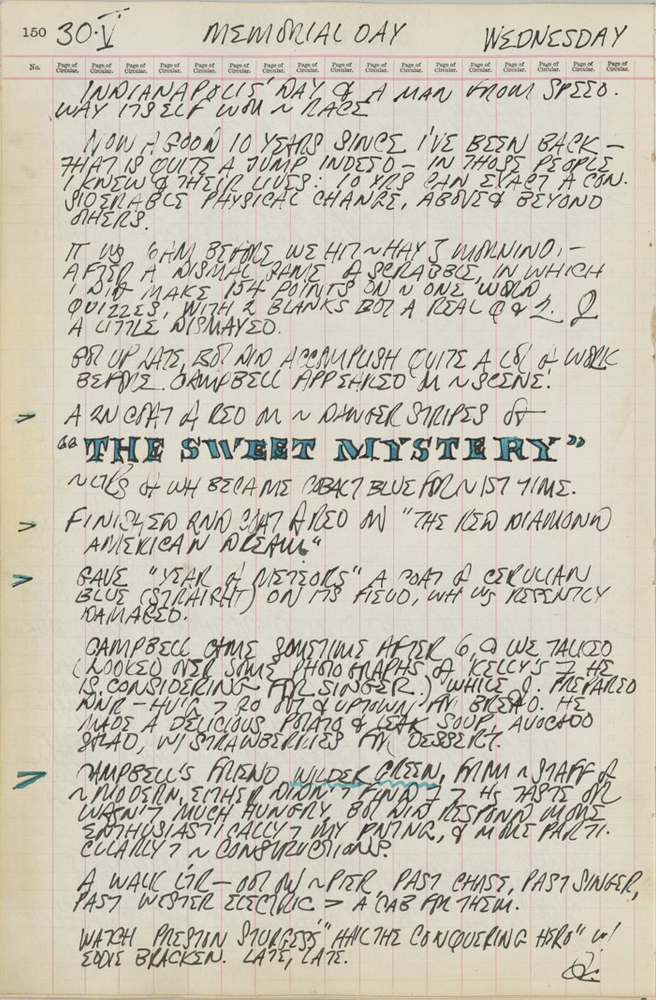 150 30·V MEMORIAL DAY WEDNESDAY
No. Page of Circular. Page of Circular. Page of Circular. Page of Circular. Page of Circular. Page of Circular. Page of Circular. Page of Circular. Page of Circular. Page of Circular. Page of Circular. Page of Circular. Page of Circular. Page of Circular.
INDIANAPOLIS' DAY, & A MAN FROM SPEED-
WAY ITSELF WON ~ RACE
NOW A GOOD 10 YEARS SINCE I'VE BEEN BACK –
THAT IS QUITE A JUMP INDEED – IN THOSE PEOPLE
I KNEW & THEIR LIVES: 10 YRS CAN EXACT A CON-
SIDERABLE PHYSICAL CHANGE, ABOVE & BEYOND
OTHERS.
IT WS 6AM BEFORE WE HIT ~ HAY MORNING, –
AFTER A DISMAL GAME SCRABBLE, IN WHICH
I DID MAKE 154 POINTS ON ~ ONE WORD
QUIZZES, WITH 2 BLANKS BUT A REAL Q & Z.
A LITTLE DISMAYED.
GOT UP LATE, BUT DID ACCOMPLISH QUITE A LOT WORK
BEFORE CAMPBELL APPEARED ON ~ SCENE.
> A 2ND COAT RED ON ~ DANGER STRIPES OF
"THE SWEET MYSTERY"
WH BECAME COBALT BLUE FOR ~ 1ST TIME.
> FINISHED 2ND COAT RED ON "THE RED DIAMOND
AMERICAN DREAM."
> GAVE "YEAR METEORS" A COAT CERULIAN
BLUE (STRAIGHT) ON ITS FIELD, WH WS RECENTLY
DAMAGED.
CAMPBELL CAME SOMETIME AFTER 6, & WE TALKED
(LOOKED OVER SOME PHOTOGRAPHS KELLY'S HE
IS CONSIDERING FOR SINGER.) WHILE PREPARED
DNR – UPTOWN FOR BREAD. HE
MADE A DELICIOUS POTATO & LEAK SOUP, AVOCADO
SALAD, W/ STRAWBERRIES FOR DESSERT.
> CAMPBELL'S FRIEND WILDER GREEN, FROM ~ STAFF
~ MODERN, EITHER DIDN'T FIND HS TASTE OR
WASN'T MUCH HUNGRY, BUT DID RESPOND MORE
ENTHUSIASTICALLY MY PNTNG, & MORE PARTI-
CULARLY ~ CONSTRUCTIONS.
A WALK LTR – OUT ON ~ PIER, PAST CHASE, PAST SINGER,
PAST WESTER ELECTRIC > A CAB FOR THEM.
WATCH PRESTON STURGESS' "HAIL THE CONQUERING HERO" W/
EDDIE BRACKEN. LATE, LATE.